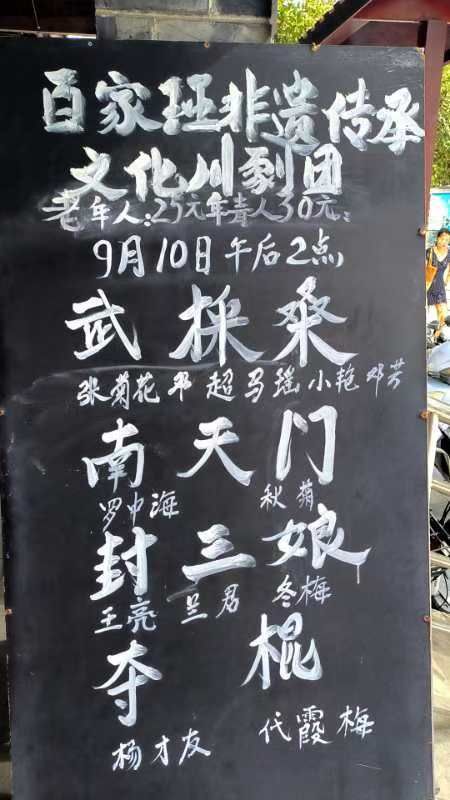 百家班非遗传承
文化川剧团
老年人:25元年青人30元:
9月10日午后2点
武採桑
张菊花 邓超 马瑶 小艳 邓芳
南天门
罗中海 秋菊
封三娘
王亮 兰君 冬梅
夺棍
杨才友 代霞梅